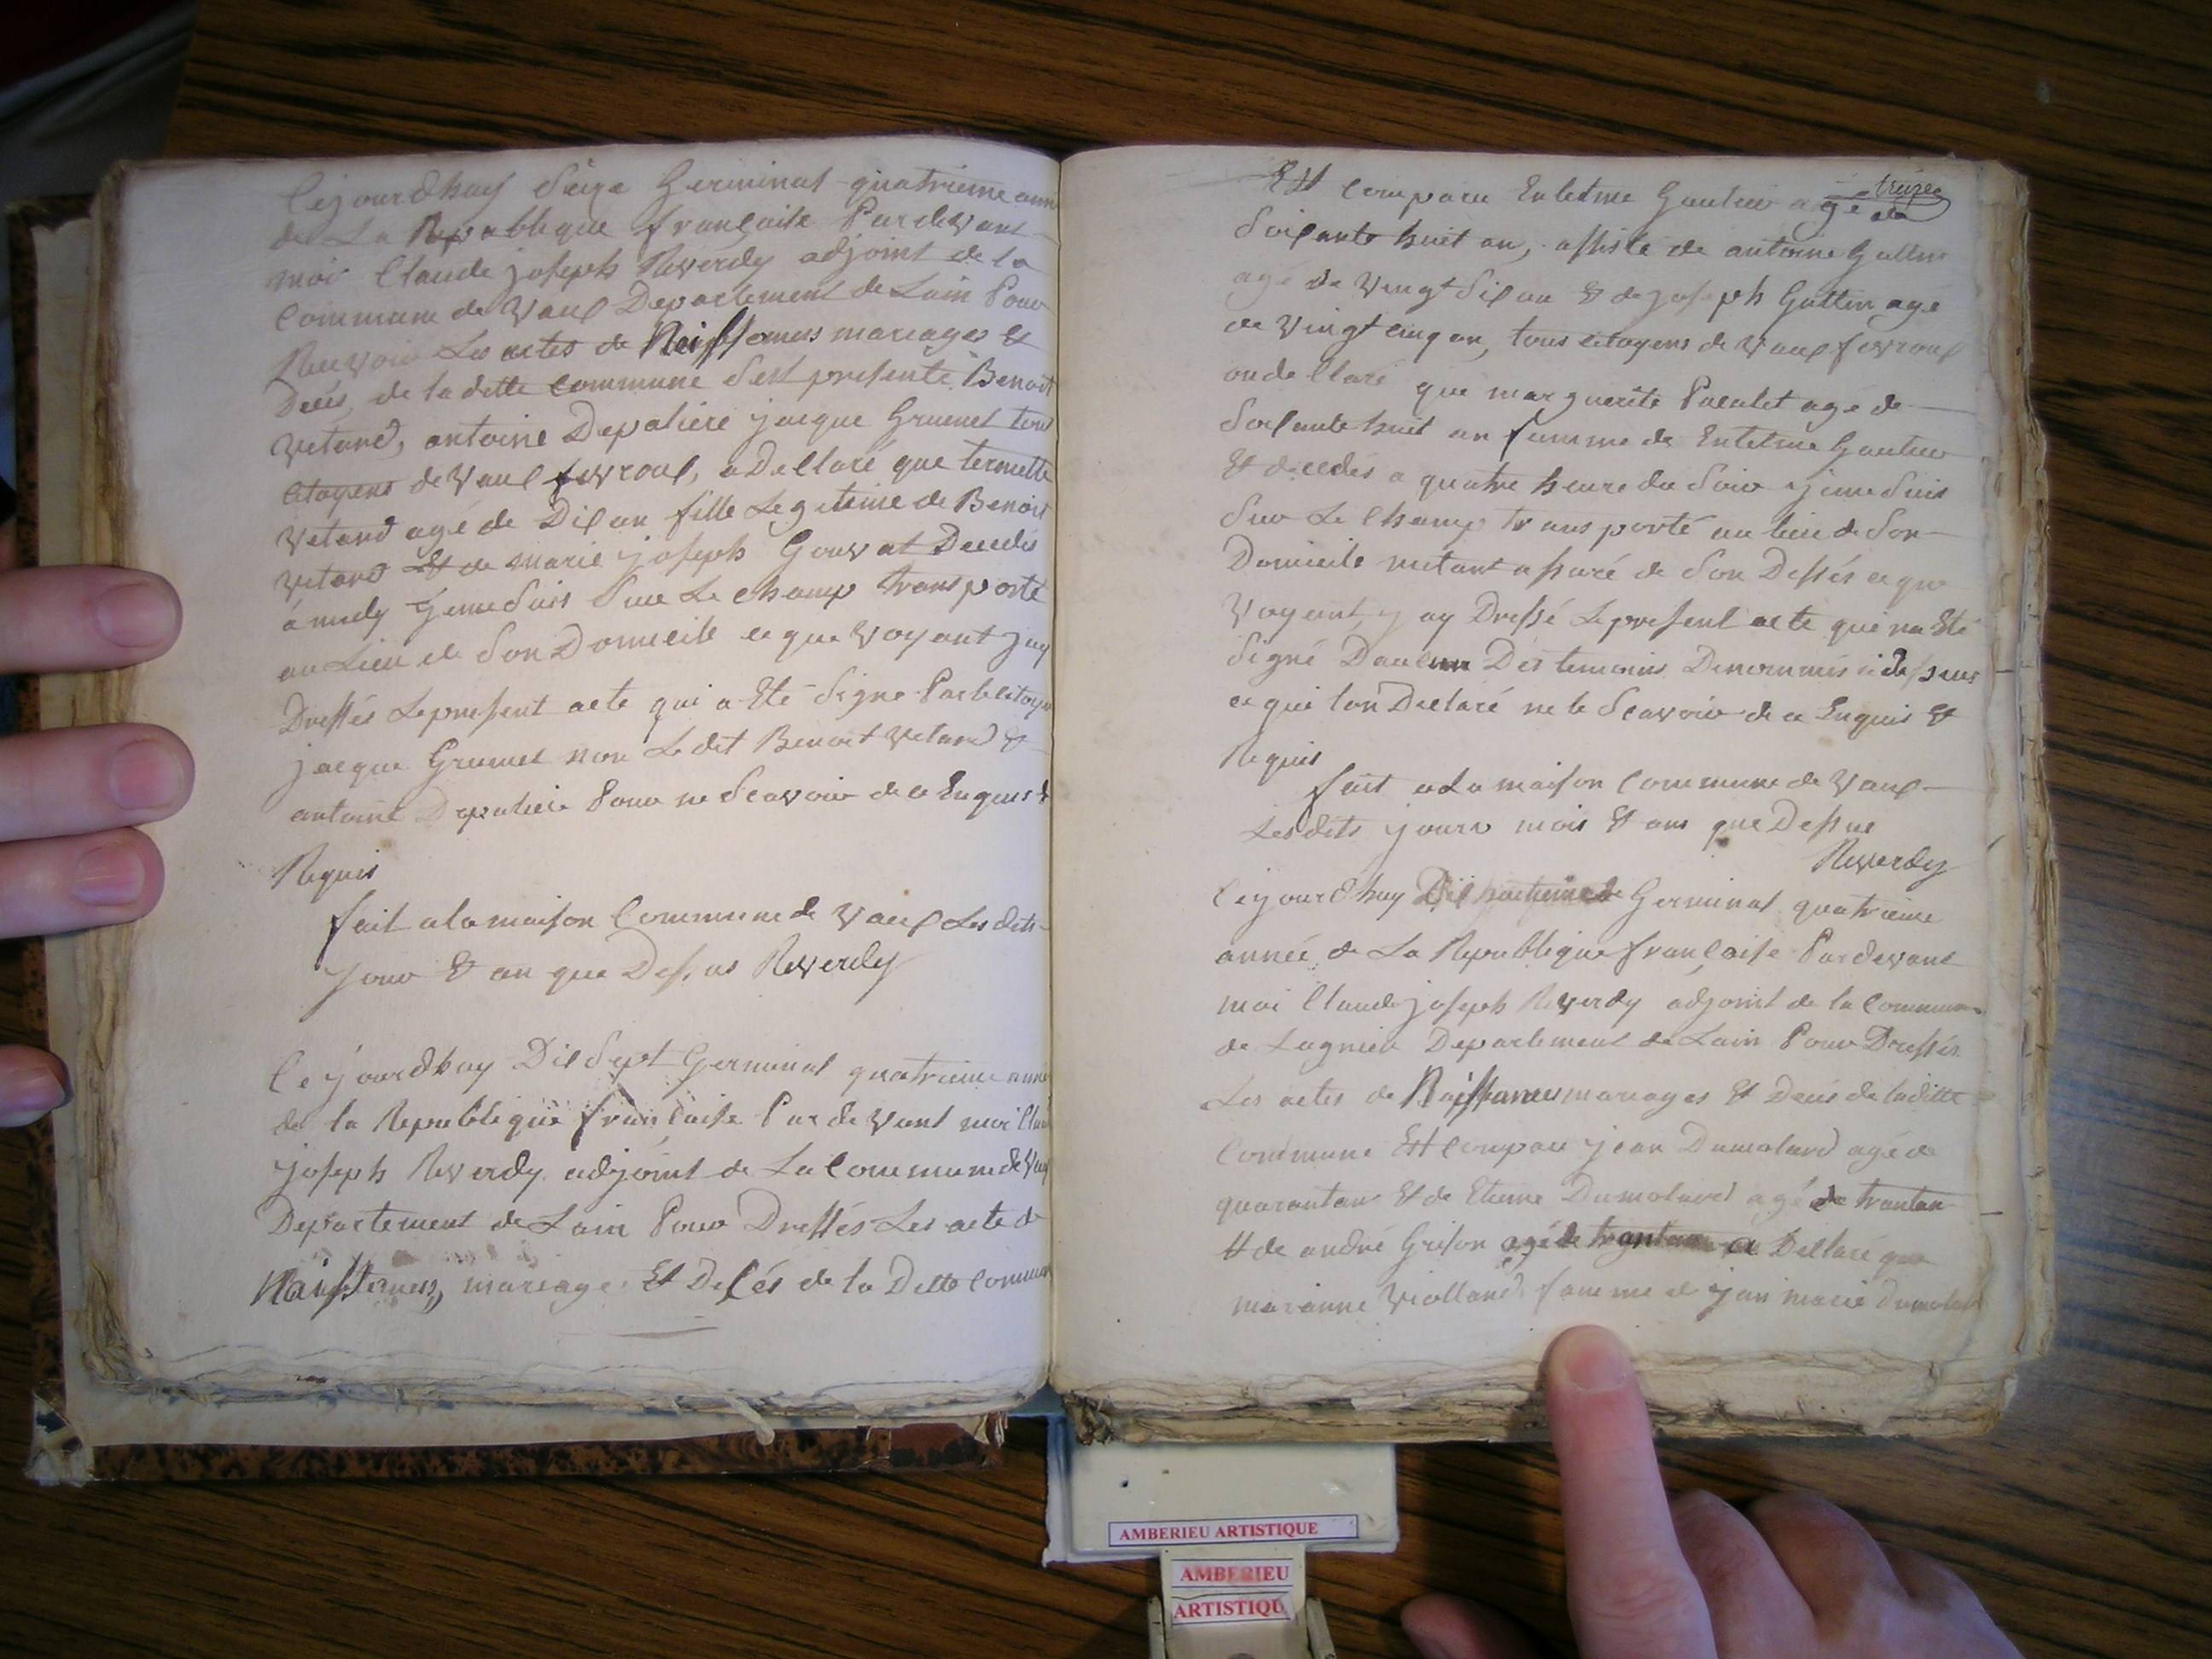 Cejourdhuy Seize Germinal quatrieme ann
de La Republique française Pardevant
moi Claude joseph Reverdy adjoint de la
Commune de Vaux Departement de Lain Pour
Recevoir Les actes de Naissances mariages et
Décés de la ditte Commune S'est presenté Benoit
Vetard, antoine Depaliere jacque Grumet tous
Citoyens de Vaux fevroux, a Declaré que
Vetard agé de Dix an fille Legeteime de Benoit
Vetard Et de marie joseph Decedés
á midy jeme Suis Sur Le Champ transporté
au Lieu de Son Domeile ce que Voyant jay
Dressés Lepresent acte qui a Eté Signe Par
jacque Grumet non Le dit Benoit Vetard &
antoine Depaliere Pour ne Scavoir de ce Enquis &
Requis
fait a la maison Commune de Vaux Les dits
jour & an que Dessus Reverdy
Ce jourdhuy Dix Sept Germinal quatrieme anné
de la Republique française Par de Vant moi
joseph Reverdy adjoint de La Commune de
Departement de Lain Pour Dressés Les acte de
Naissances, mariage Et Decés de la Ditte Commun
treize
Est Comparu Enletme Gautier agé de
Soixante huit an, assisté de antoine
agé de Vingt Six an & de joseph Guttin agé
de Vingt cinq an, tous citoyens de Vaux fevroux
on declaré que marguerite agé de
Soixante huit an famme de Entelme Gautier
Et decedés a quatre heure du Soir jeme Suis
Sur Le Champ transporté au lieu de Son
Domicile metant assuré de Son Dessés ce que
Voyant, j ay Dressé Lepresent acte que na Eté
Signé Daucun Des temoins Denommés ci dessus
ce qui lon Declaré ne le Scavoir de ce Enquis &
Requis
fait a La maison Commune de Vaux
Lesdits jours mois & ans que Dessus
Reverdy
Cejourdhuy Dix Germinal quatrieme
année de La Republique française Pardevant
moi Claude joseph Reverdy adjoint de la Commune
de Lagnieu Departement de Lain Pour Dressés
Les actes de Naissances mariages & Decés de laditte
Commune Est Comparu jean Dumolard agé de
quarantan & de Etiene Dumolard agé de trantan
& de andré Grison agé de trantan a Declaré que
marianne Violland famme de jean marie
AMBERIEU ARTISTIQUE
AMBERIEU
ARTISTIQU